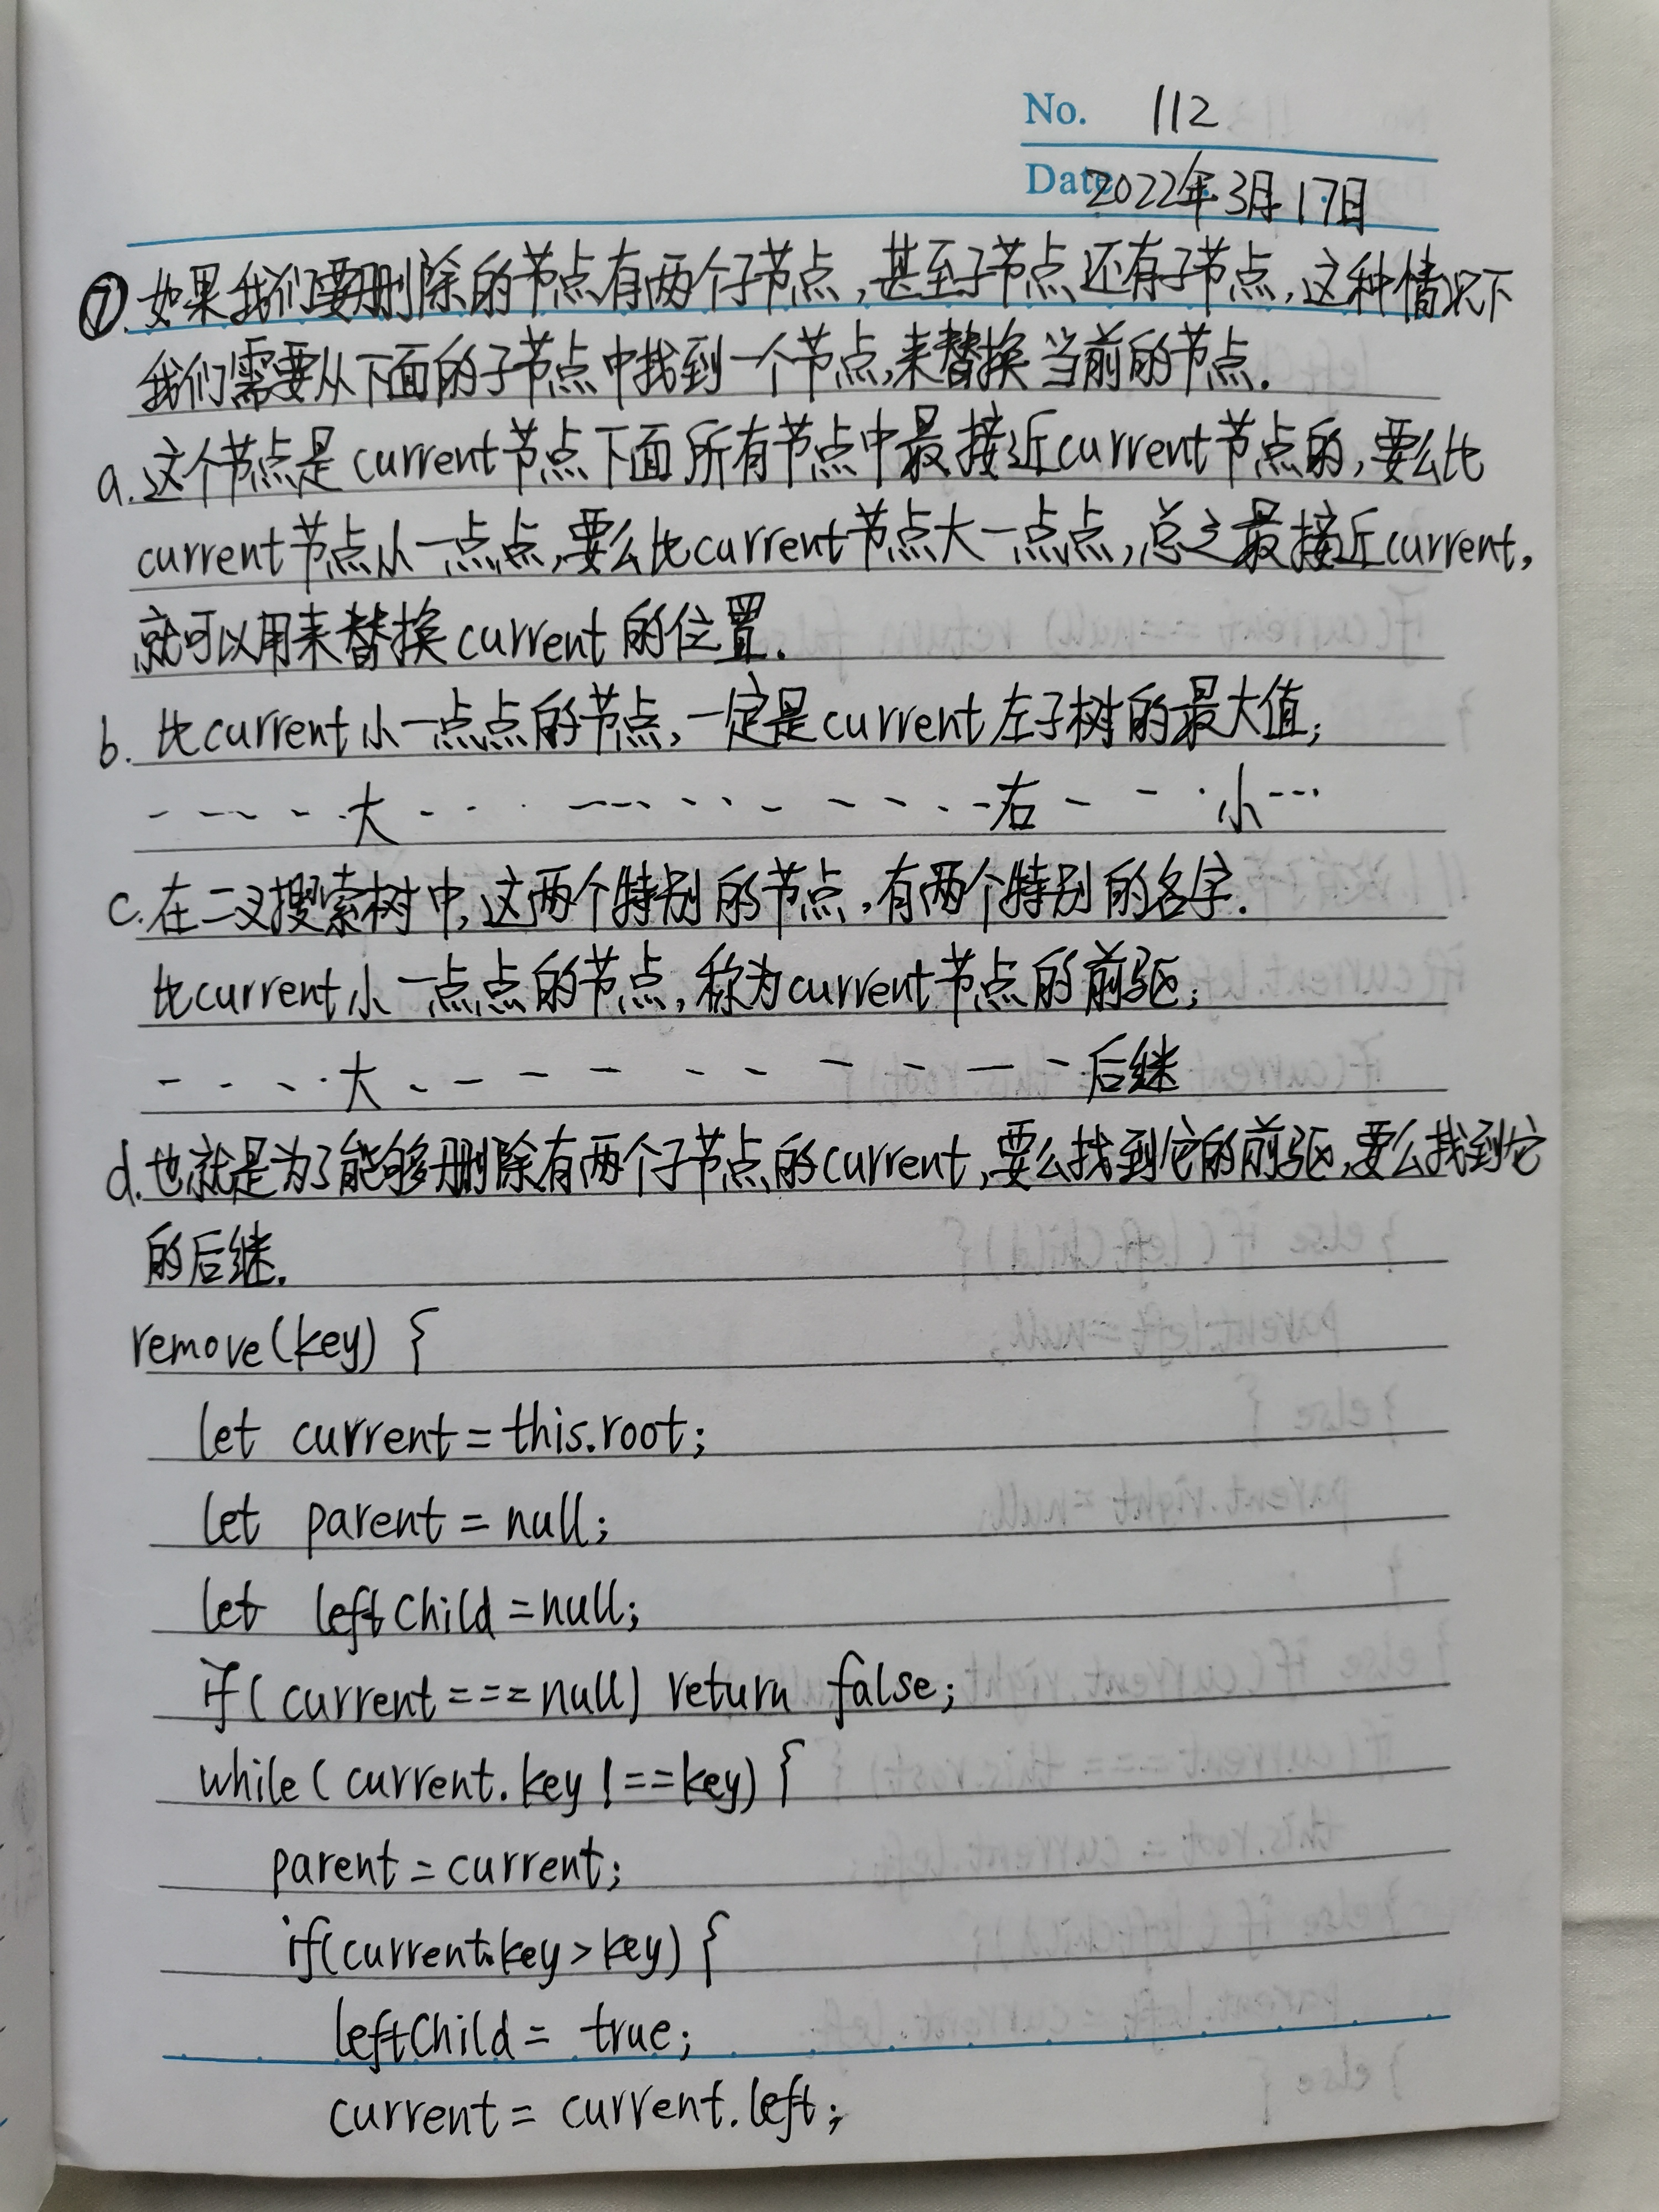 No. 112
Date 2022年3月17日
⑦.如果我们要删除的节点有两个子节点,甚至子节点还有子节点,这种情况下
我们需要从下面的子节点中找到一个节点,来替换当前的节点.
a.这个节点是current节点下面所有节点中最接近current节点的,要么比
current节点小一点点,要么比current节点大一点点,总之最接近current,
就可以用来替换current的位置.
b. 比current小一点点的节点,一定是current左子树的最大值;
- - - - - 大 - - - - - - - - - - - - - 右 - - - 小 ...
c.在二叉搜索树中,这两个特别的节点,有两个特别的名字.
比current小一点点的节点,称为current节点的前驱;
- - - - 大 - - - - - - - - - - - 后继
d.也就是为了能够删除有两个子节点的current,要么找到它的前驱,要么找到它
的后继.
remove(key) {
let current = this.root;
let parent = null;
let leftChild = null;
if(current === null) return false;
while(current.key !== key) {
parent = current;
if(current.key > key) {
leftChild = true;
current = current.left;